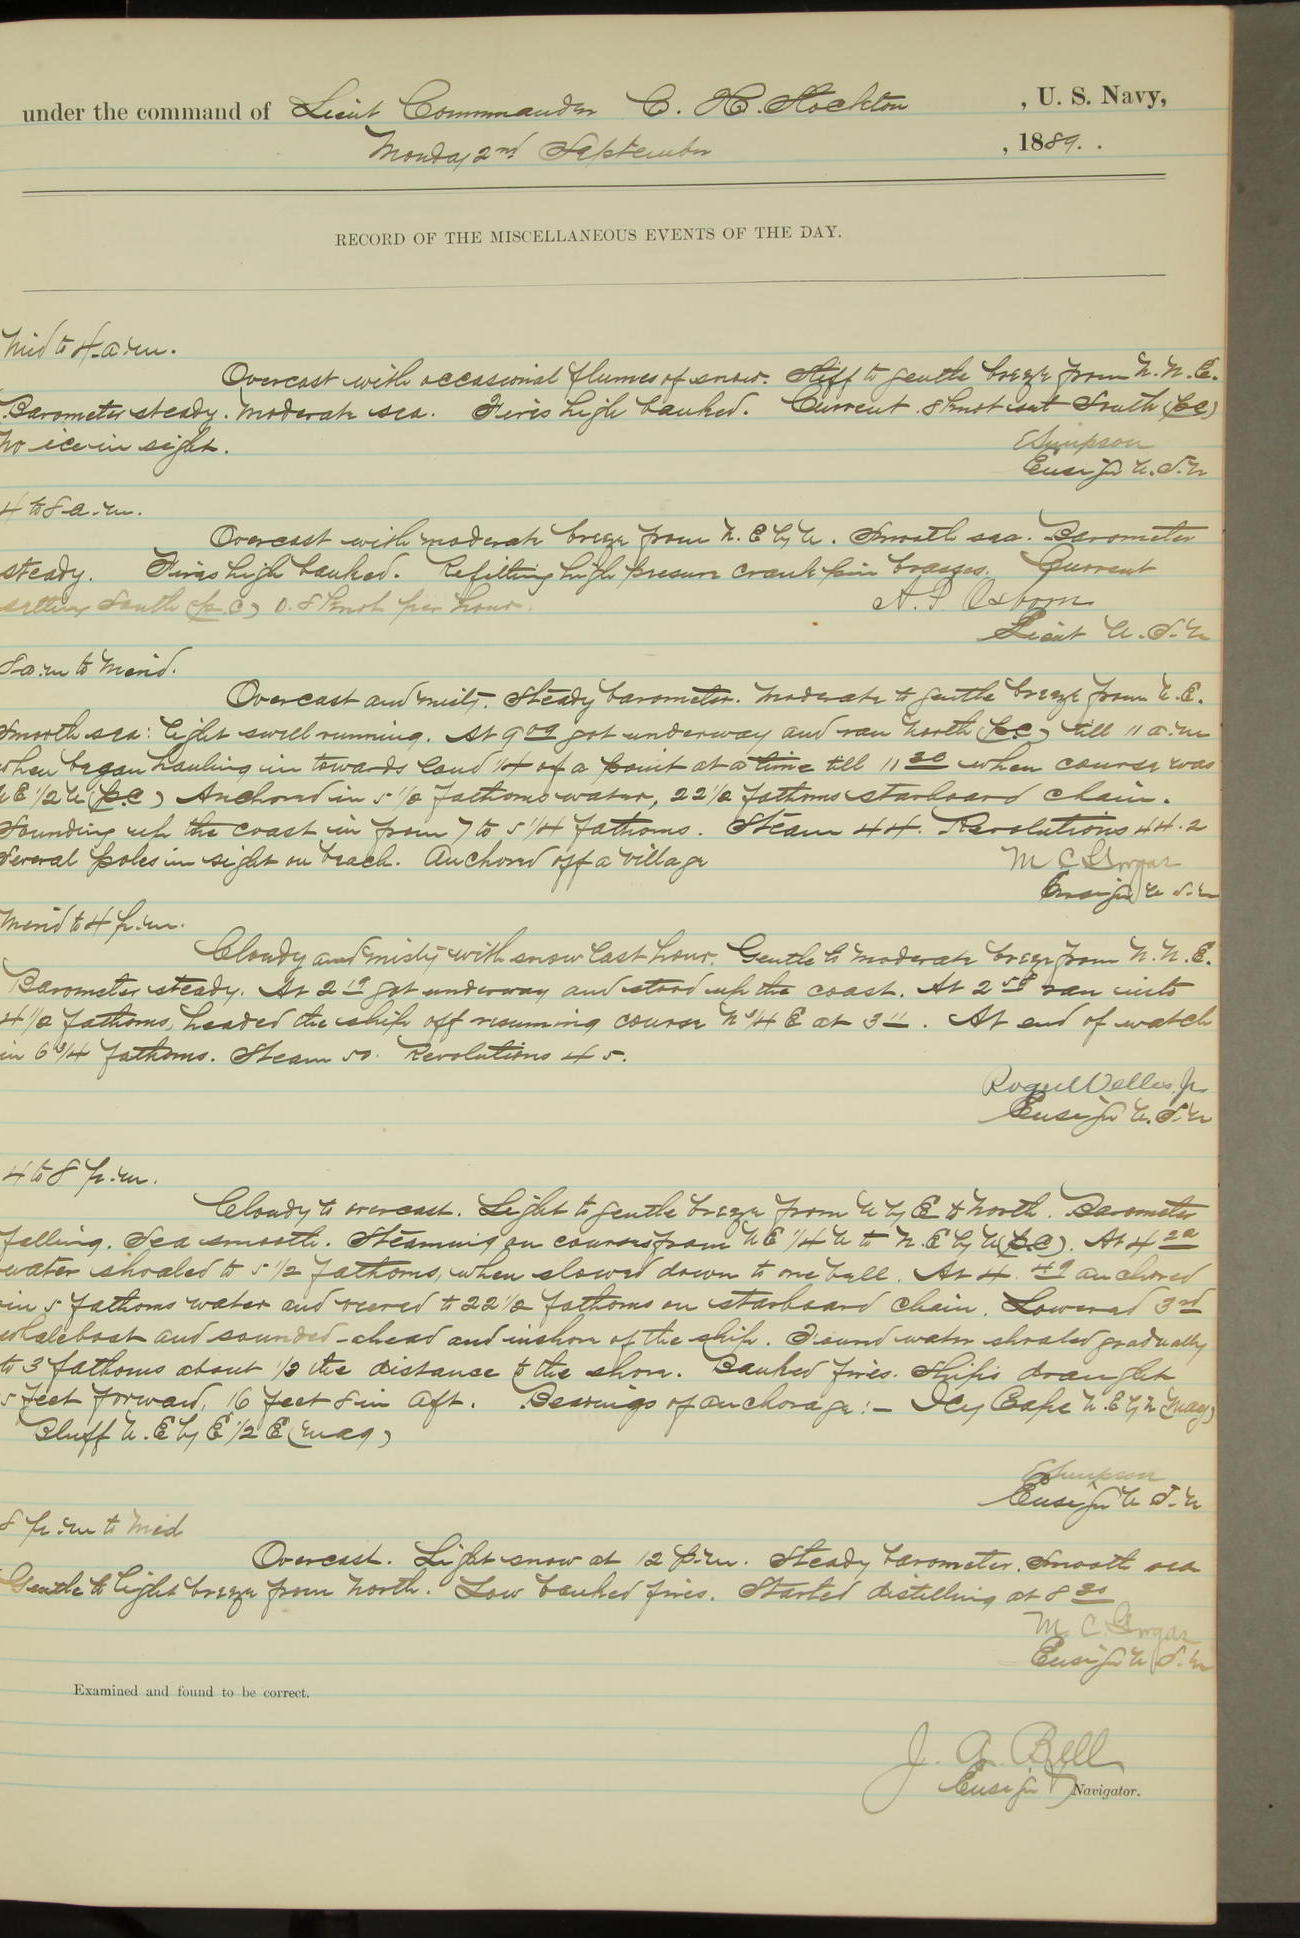 under the command of Lieut Commander C. H. Stockton , U. S. Navy,
Monday 2nd September , 1889.
RECORD OF THE MISCELLANEOUS EVENTS OF THE DAY.
Mid to 4 a.m.
Overcast with occasional flumes of snow. Stiff to gentle breeze from N. N. E.
Barometer steady. Moderate sea. Fires high banked. Current .8 knot set South (p.c.)
No ice in sight. E Simpson
Ensign U.S.N
4 to 8 a.m.
Overcast with moderate breeze from N. E by N. Smooth sea. Barometer
steady. Fires high banked. Refitting high presure crank pin brasses. Current
setting South (p.c) 0.8 knot per hour. A. P. Osborn
Lieut U.S.N
8 a.m to Merid.
Overcast and misty. Steady barometer. Moderate to gentle breeze from N.E.
Smooth sea: light swell running. At 9 09 got underway and ran North (p.c.) till 11 a.m
when began hauling in towards land 1/4 of a point at a time till 11 30 when course was
NE 1/2 N (p.c) Anchored in 5 1/2 fathoms water, 22 1/2 fathoms starboard chain.
Sounding up the coast in from 7 to 5 1/4 fathoms. Steam 44. Revolutions 44.2
Several poles in sight on beach. Anchored off a village M C Gorgas
Ensign U S.N
Merid to 4 p.m.
Cloudy and misty with snow last hour. Gentle to moderate breeze from N. N. E.
Barometer steady. At 2 19 got underway and stood up the coast. At 2 58 ran into
4 1/2 fathoms, headed the ship off resuming course N 3/4 E at 3 11. At end of watch
in 6 3/4 fathoms. Steam 50. Revolutions 45.
Roger Welles, Jr
Ensign U.S.N
4 to 8 p.m.
Cloudy to overcast. Light to gentle breeze from N by E to North. Barometer
falling. Sea smooth. Steaming on courses from NE 1/4 N to N.E by N (p.c). At 4 20
water shoaled to 5 1/2 fathoms, when slowed down to one bell. At 4. 49 anchored
in 5 fathoms water and veered to 22 1/2 fathoms on starboard chain. Lowered 3rd
whaleboat and sounded ahead and inshore of the ship. Found water shoaled gradually
to 3 fathoms about 1/2 the distance to the shore. Banked fires. Ship's draught
5 feet forward, 16 feet 8 in aft. Bearings of anchorage:- Icy Cape N.E by N (mag)
Bluff N.E by E 1/2 E (mag)
E Simpson
Ensign U S.N
8 p.m to Mid
Overcast. Light snow at 12 p.m. Steady barometer. Smooth sea
Gentle to light breeze from North. Low banked fires. Started distilling at 8 30
M. C. Gorgas
Ensign U S.N
Examined and found to be correct.
J. A. Bell
Ensign Navigator.